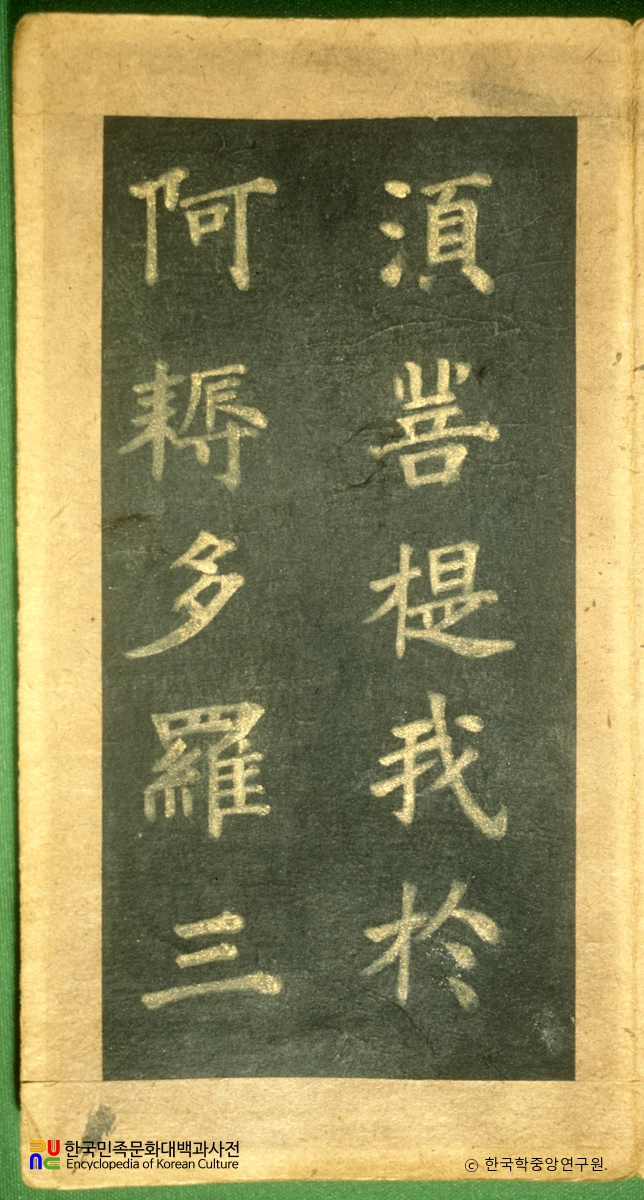 湏菩提我於
阿耨多羅三
한국민족문화대백과사전
Encyclopedia of Korean Culture
© 한국학중앙연구원.